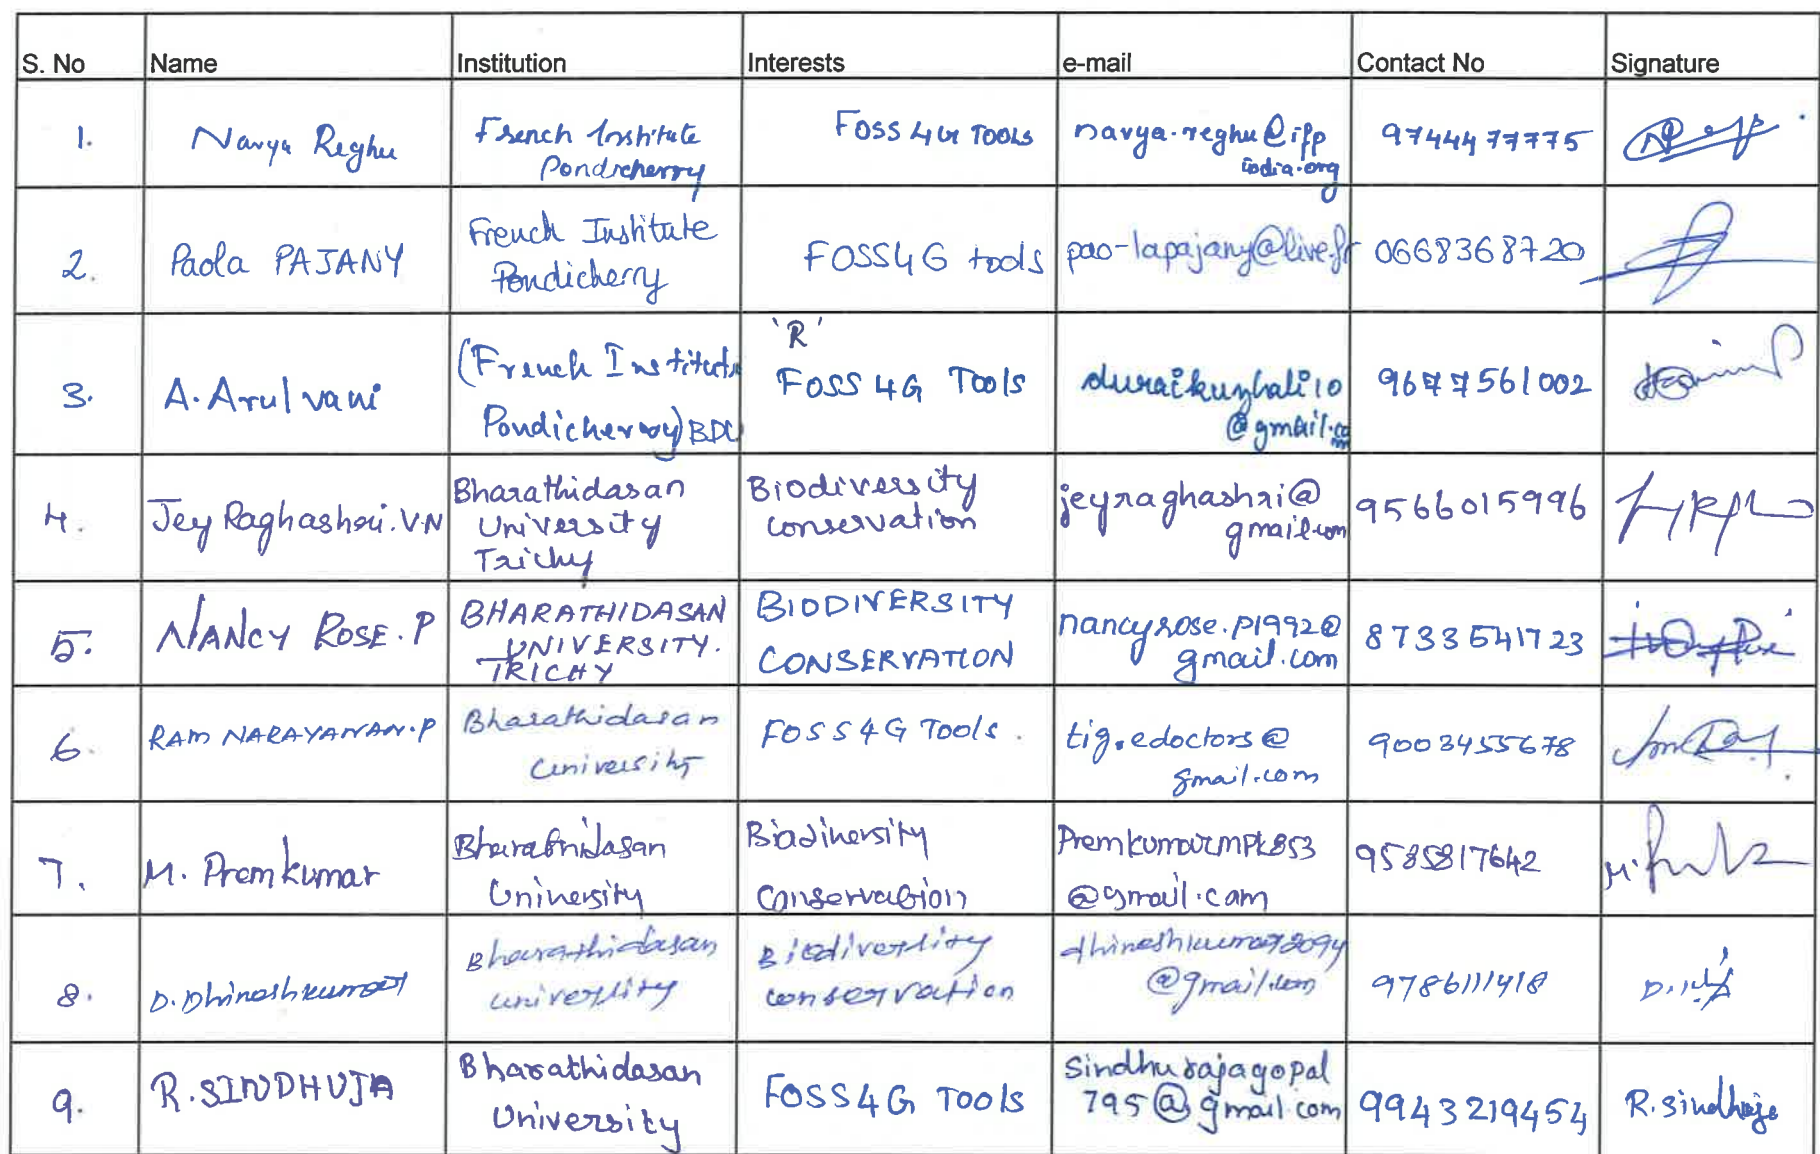 S. No Name Institution Interests e-mail Contact No Signature
1. Navya Reghu French Institute Pondicherry FOSS 4G TOOLS navya.reghu@ifpindia.org 9744477775
2. Paola PAJANY French Institute Pondicherry FOSS4G tools pao-lapajany@live.fr 0668368720
3. A. Arulvani (French Institute Pondicherry) BDC 'R' FOSS 4G Tools duraikuzhali10@gmail.com 9677561002
4. Jey Raghashri. V.N Bharathidasan University Trichy Biodiversity conservation jeyraghashri@gmail.com 9566015996
5. NANCY ROSE. P BHARATHIDASAN UNIVERSITY. TRICHY BIODIVERSITY CONSERVATION nancyrose.p1992@gmail.com 8733541723
6. RAM NARAYANAN. P Bharathidasan University FOSS4G Tools. tig.edoctors@gmail.com 9003455678
7. M. Premkumar Bharathidasan University Biodiversity Conservation Premkumarmpk853@gmail.com 9585817642
8. D. Dhineshkumar Bharathidasan university Biodiversity conservation @gmail.com 9786111418
9. R. SINDHUJA Bharathidasan University FOSS4G TOOlS Sindhurajagopal795@gmail.com 9943219454 R. Sindhuja